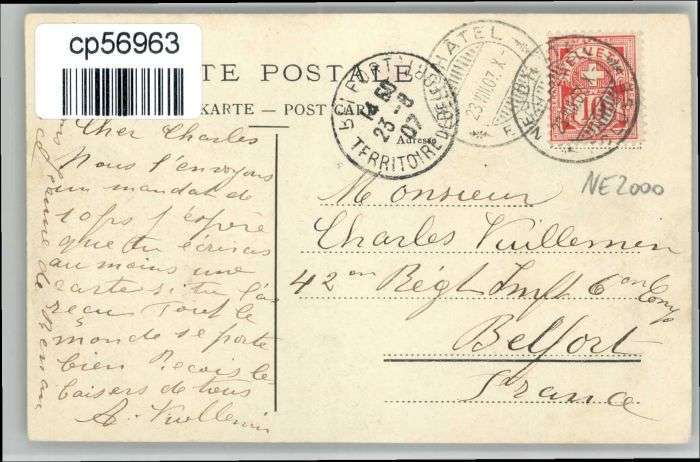 cp56963
TE POSTALE
KARTE – POST CAR
Adresse
BELFORT
23 -8 07
TERRITOIRE DE BELFORT
NEUCHATEL
23.VIII.07.X
HELVETIA
10
NE2000
Cher Charles
Nous t'envoyons
un mandat de
10 frs j'espère
que tu écriras
au moins une
carte si tu l'as
reçu Tout le
monde se porte
bien Reçois les
baisers de tous
A. Vuillemin
Monsieur
Charles Vuillemin
42 em Régt Inft 6 em Comp
Belfort
France